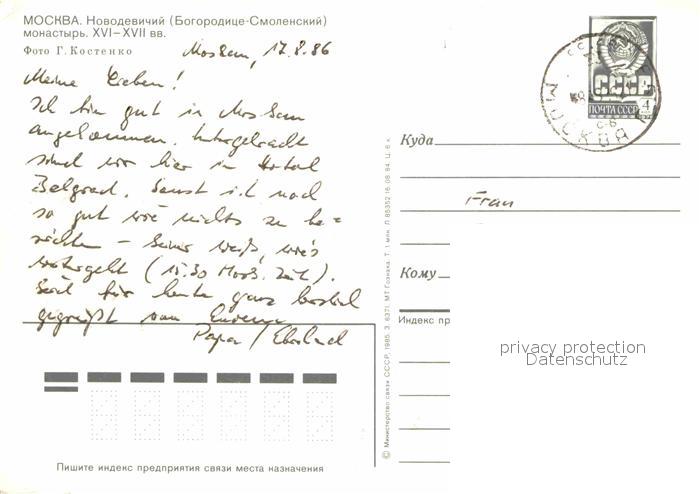 МОСКВА. Новодевичий (Богородице-Смоленский)
монастырь. XVI–XVII вв.
Фото Г. Костенко
Moskau, 17.8.86
Meine Lieben!
Ich bin gut in Moskau
angekommen. Untergebracht
sind wir hier im Hotel
Belgrad. Sonst ist noch
so gut wie nichts zu be=
richten – keiner weiß, wie's
weitergeht (15.30 Mosk. Zeit).
Seid für heute ganz herzlich
gegrüßt von Eurem
Papa / Eberhard
СССР
ПОЧТА СССР
4
МОСКВА
Куда
Frau
Кому
Индекс пр
privacy protection
Datenschutz
© Министерство связи СССР, 1985. З. 6371. МТ Гознака. Т. 1 млн. Л 85352 16.08.84. Ц. 6 к.
Пишите индекс предприятия связи места назначения